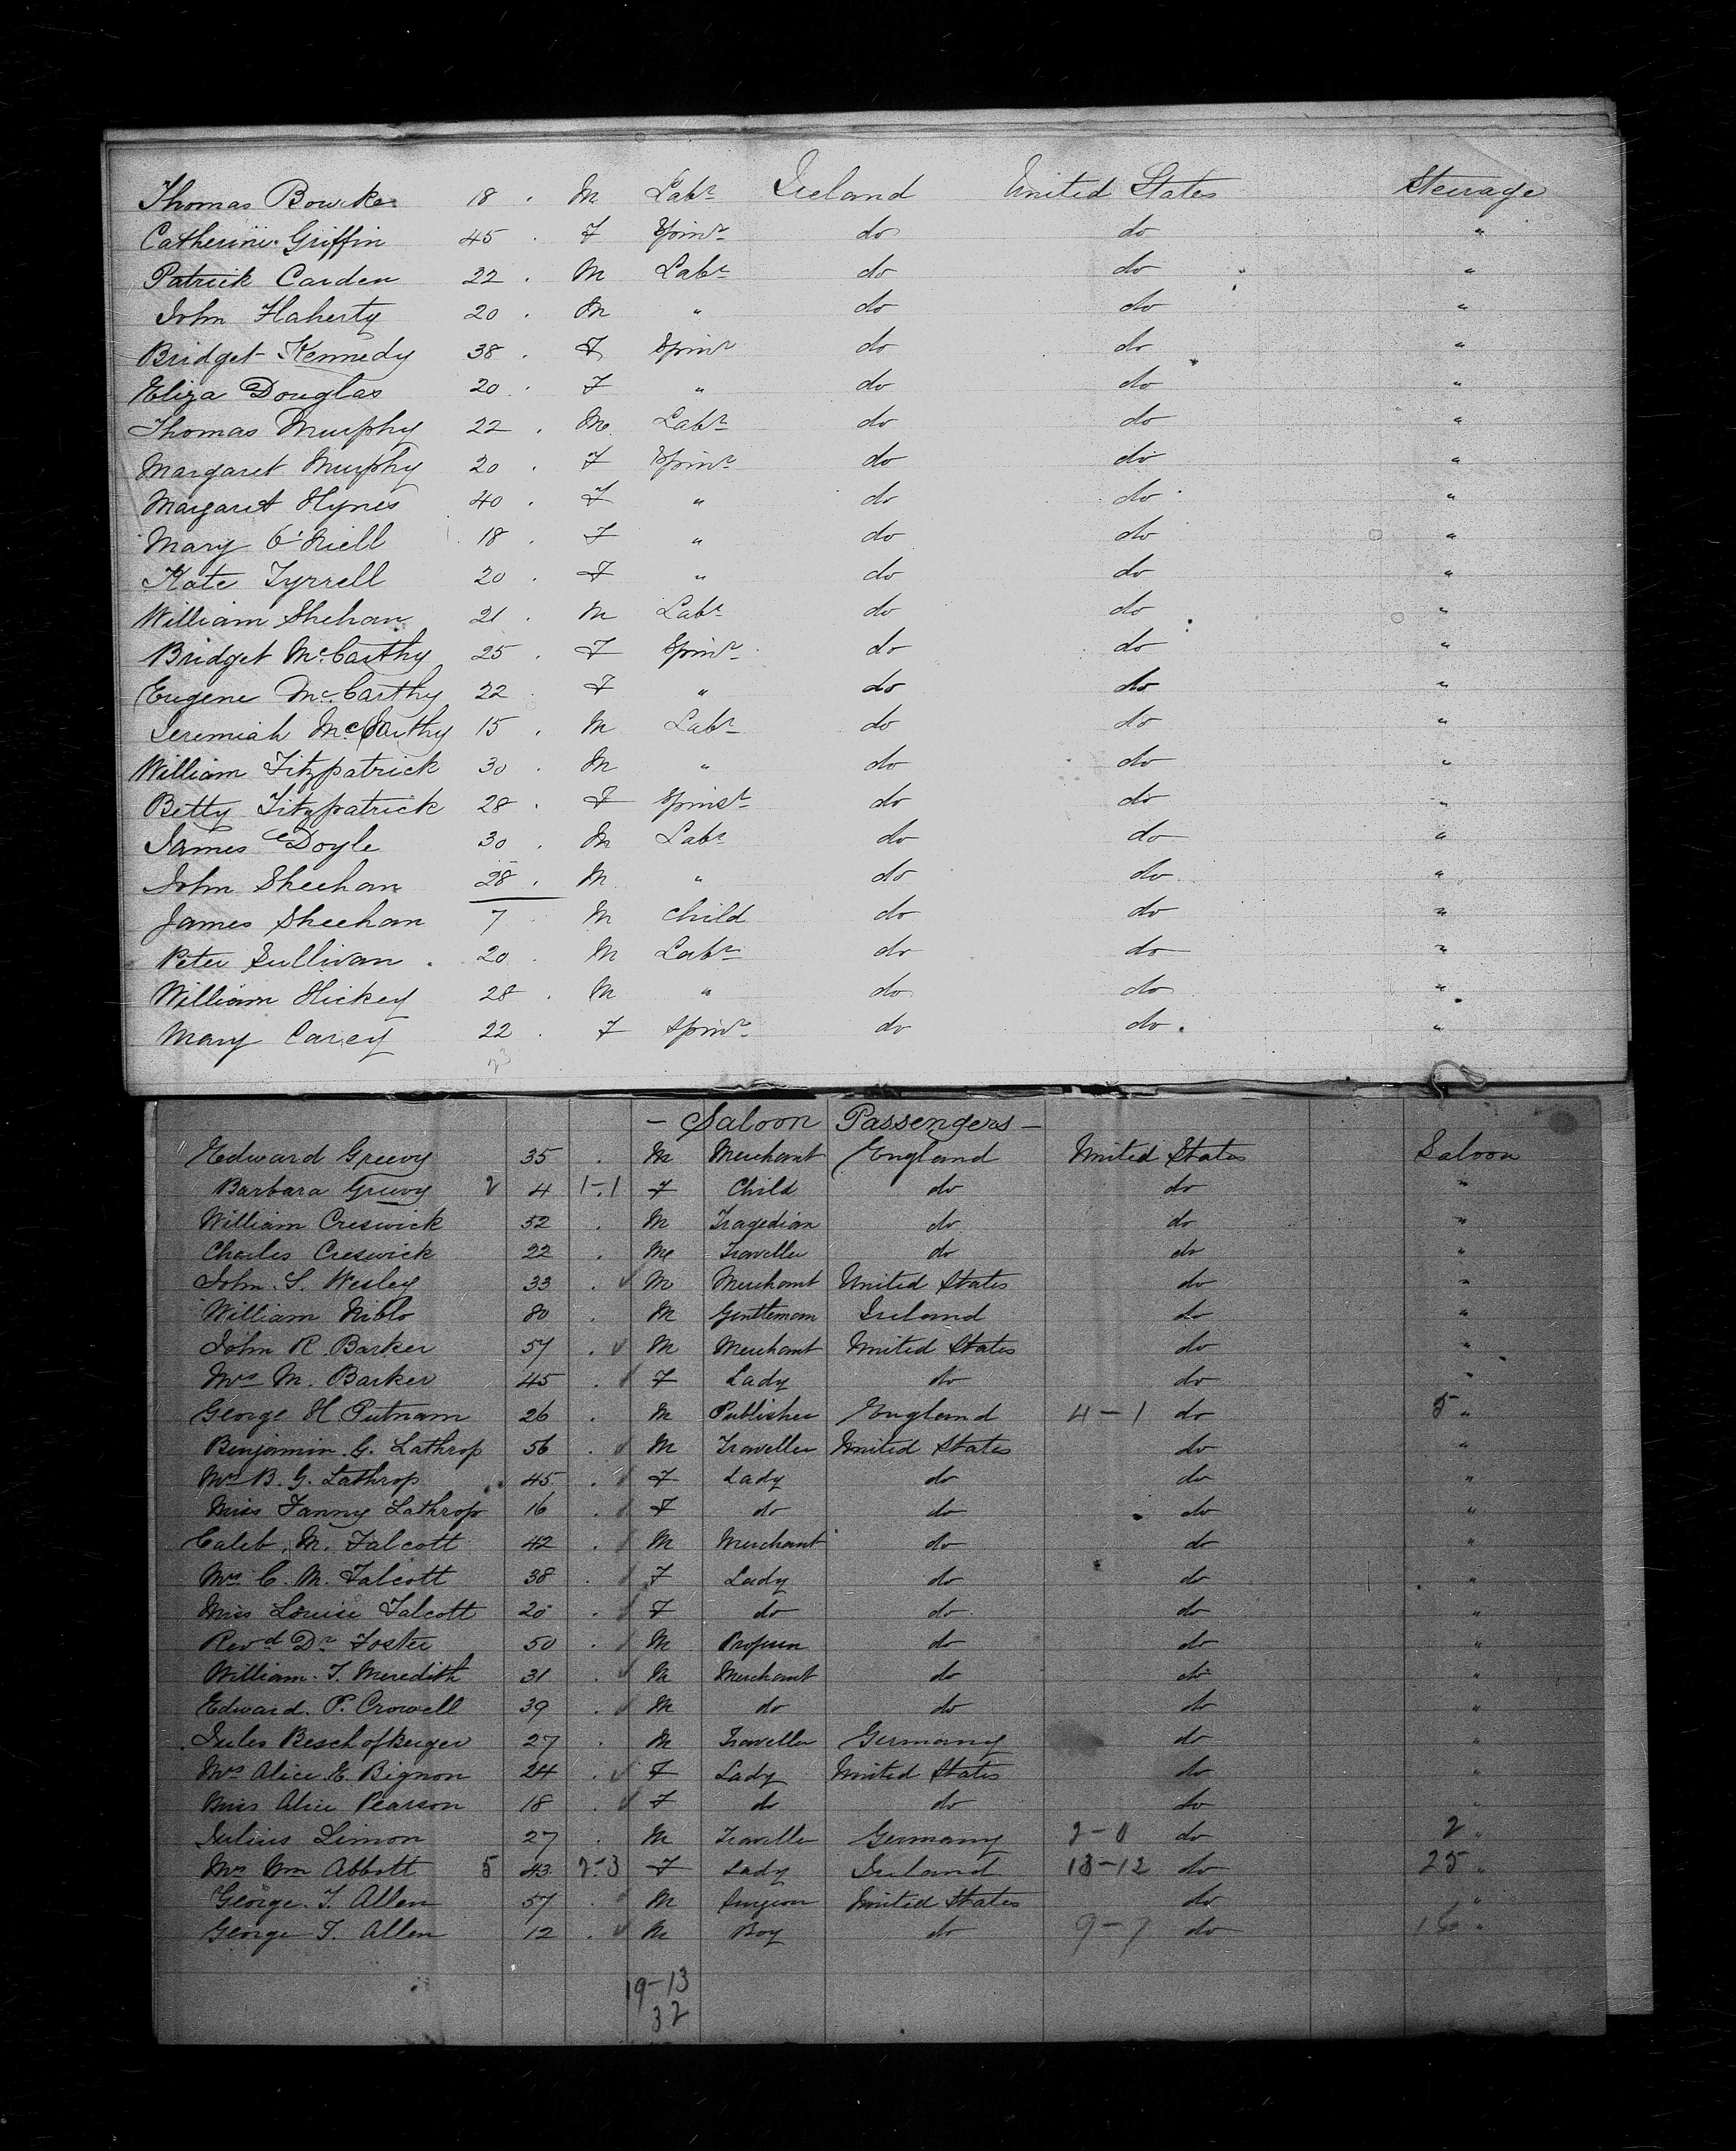 Thomas Bowke 18 . M Labr Ireland United States Steerage
Catherine Griffin 45 . F Spinr do do "
Patrick Carden 22 . M Labr do do "
John Flaherty 20 . M " do do "
Bridget Kennedy 38 . F Spinr do do "
Eliza Douglas 20 . F " do do "
Thomas Murphy 22 . M Labr do do "
Margaret Murphy 20 . F Spinr do do "
Margaret Hynes 40 . F " do do "
Mary O'Niell 18 . F " do do "
Kate Tyrrell 20 . F " do do "
William Shehan 21 . M Labr do do "
Bridget McCarthy 25 . F Spinr do do "
Eugene McCarthy 22 . F " do do "
Jeremiah McCarthy 15 . M Labr do do "
William Fitzpatrick 30 . M " do do "
Betty Fitzpatrick 28 . F Spinstr do do "
James Doyle 30 . M Labr do do "
John Sheehan 28 . M " do do "
James Sheehan 7 . M Child do do "
Peter Sullivan . 20 . M Labr do do "
William Hickey 28 . M " do do "
Mary Carey 22 . F Spinr do do "
- Saloon Passengers -
Edward Greevy 35 . M Merchant England United States Saloon
Barbara Greevy 2 4 1-1 F Child do do "
William Creswick 52 . M Tragedian do do "
Charles Creswick 22 . M Traveller do do "
John S. Wesley 33 . M Merchant United States do "
William Niblo 80 . M Gentleman Ireland do "
John R. Barker 57 . M Merchant United States do "
Mrs M. Barker 45 . F Lady do do "
George H Putnam 26 . M Publisher England 4-1 do 5 "
Benjamin G. Lathrop 56 . M Traveller United States do "
Mrs B. G. Lathrop 45 . F Lady do do "
Miss Fanny Lathrop 16 . F do do do "
Caleb. M. Talcott 42 . M Merchant do do "
Mrs C. M. Talcott 38 . F Lady do do "
Miss Louise Talcott 20 . F do do do "
Revd Dr Foster 50 . M Professor do do "
William. T. Meredith 31 . M Merchant do do "
Edward. P. Crowell 39 . M do do do "
Jules Beschofberger 27 . M Traveller Germany do "
Mrs Alice. E. Bignon 24 . F Lady United States do "
Miss Alice Pearson 18 . F do do do "
Julius Simon 27 . M Traveller Germany 2-0 do 2 "
Mrs Wm Abbott 5 43 2-3 F Lady Ireland 13-12 do 25 "
George. T. Allen 57 . M Surgeon United States do "
George T. Allen 12 . M Boy do 9-7 do 16 "
19-13
32